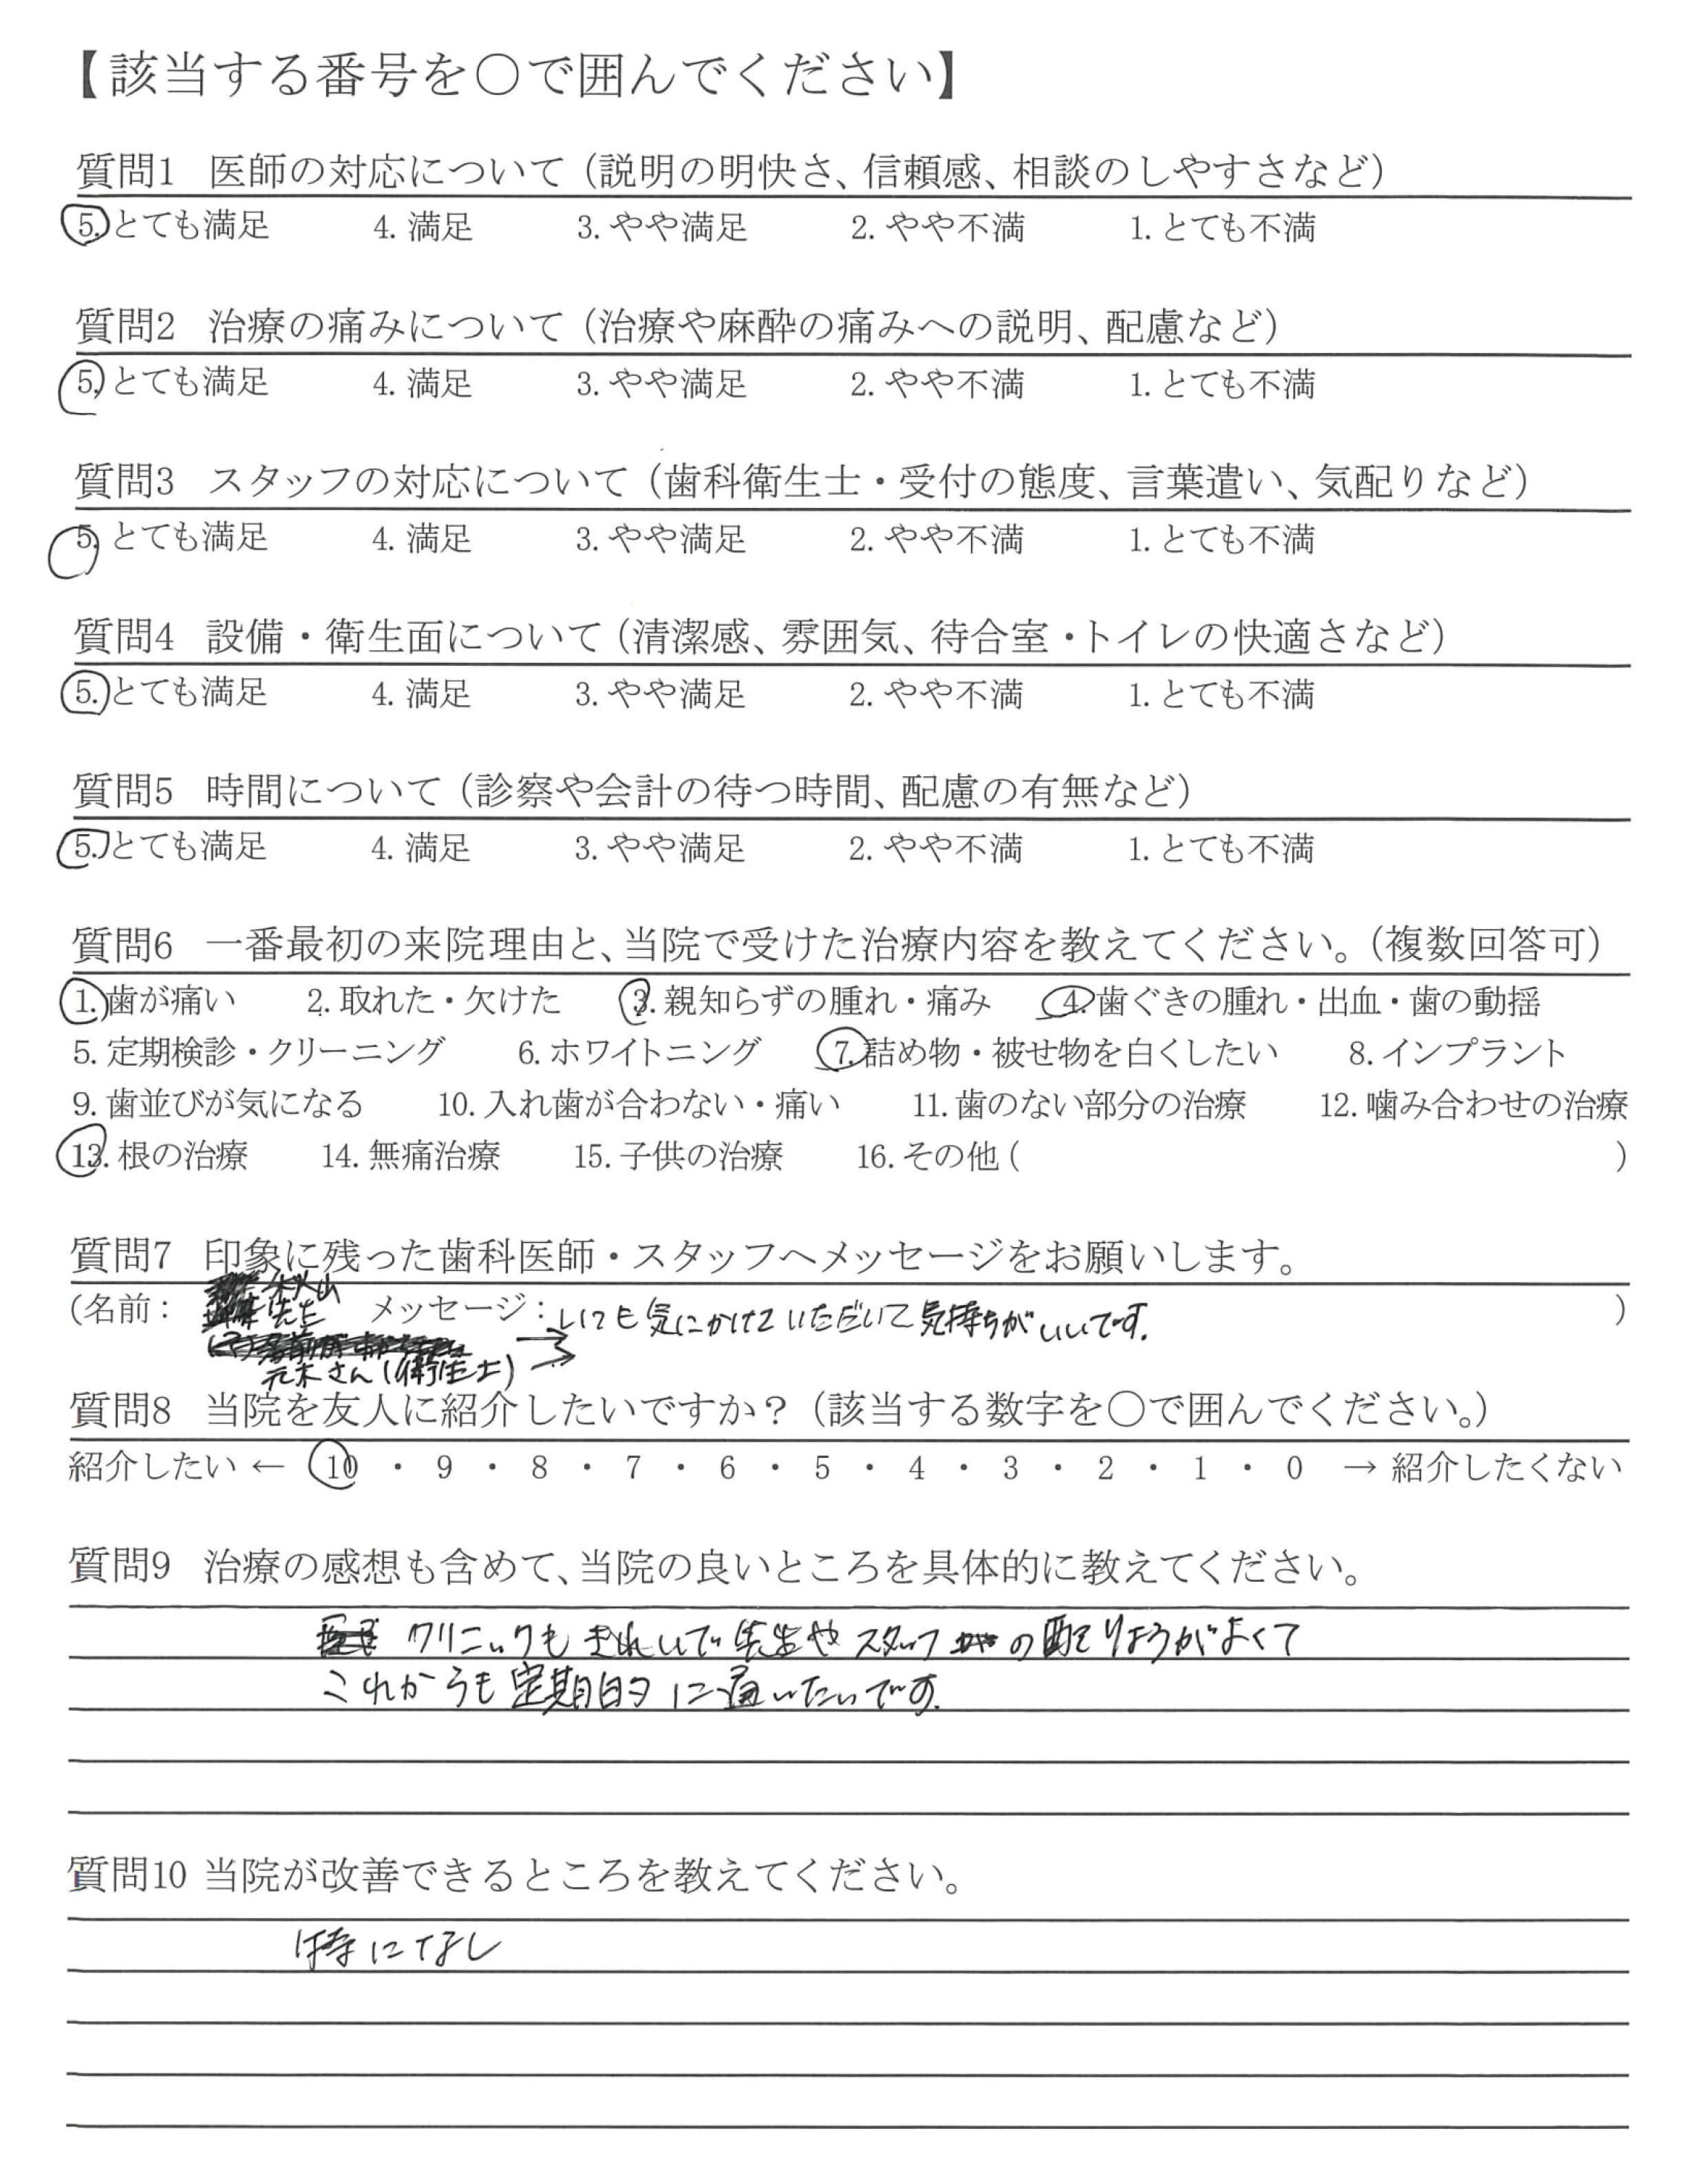 【該当する番号を〇で囲んでください】
質問1 医師の対応について（説明の明快さ、信頼感、相談のしやすさなど）
5. とても満足 4. 満足 3. やや満足 2. やや不満 1. とても不満
質問2 治療の痛みについて（治療や麻酔の痛みへの説明、配慮など）
5. とても満足 4. 満足 3. やや満足 2. やや不満 1. とても不満
質問3 スタッフの対応について（歯科衛生士・受付の態度、言葉遣い、気配りなど）
5. とても満足 4. 満足 3. やや満足 2. やや不満 1. とても不満
質問4 設備・衛生面について（清潔感、雰囲気、待合室・トイレの快適さなど）
5. とても満足 4. 満足 3. やや満足 2. やや不満 1. とても不満
質問5 時間について（診察や会計の待つ時間、配慮の有無など）
5. とても満足 4. 満足 3. やや満足 2. やや不満 1. とても不満
質問6 一番最初の来院理由と、当院で受けた治療内容を教えてください。（複数回答可）
1. 歯が痛い 2. 取れた・欠けた 3. 親知らずの腫れ・痛み 4. 歯ぐきの腫れ・出血・歯の動揺
5. 定期検診・クリーニング 6. ホワイトニング 7. 詰め物・被せ物を白くしたい 8. インプラント
9. 歯並びが気になる 10. 入れ歯が合わない・痛い 11. 歯のない部分の治療 12. 噛み合わせの治療
13. 根の治療 14. 無痛治療 15. 子供の治療 16. その他（ ）
質問7 印象に残った歯科医師・スタッフへメッセージをお願いします。
（名前： 先生 メッセージ：いつも気にかけていただいて気持ちがいいです。 ）
元木さん（衛生士）→
質問8 当院を友人に紹介したいですか？（該当する数字を〇で囲んでください。）
紹介したい ← 10 ・ 9 ・ 8 ・ 7 ・ 6 ・ 5 ・ 4 ・ 3 ・ 2 ・ 1 ・ 0 → 紹介したくない
質問9 治療の感想も含めて、当院の良いところを具体的に教えてください。
クリニックもきれいで先生やスタッフの配りょうがよくて
これからも定期的に通いたいです。
質問10 当院が改善できるところを教えてください。
特になし